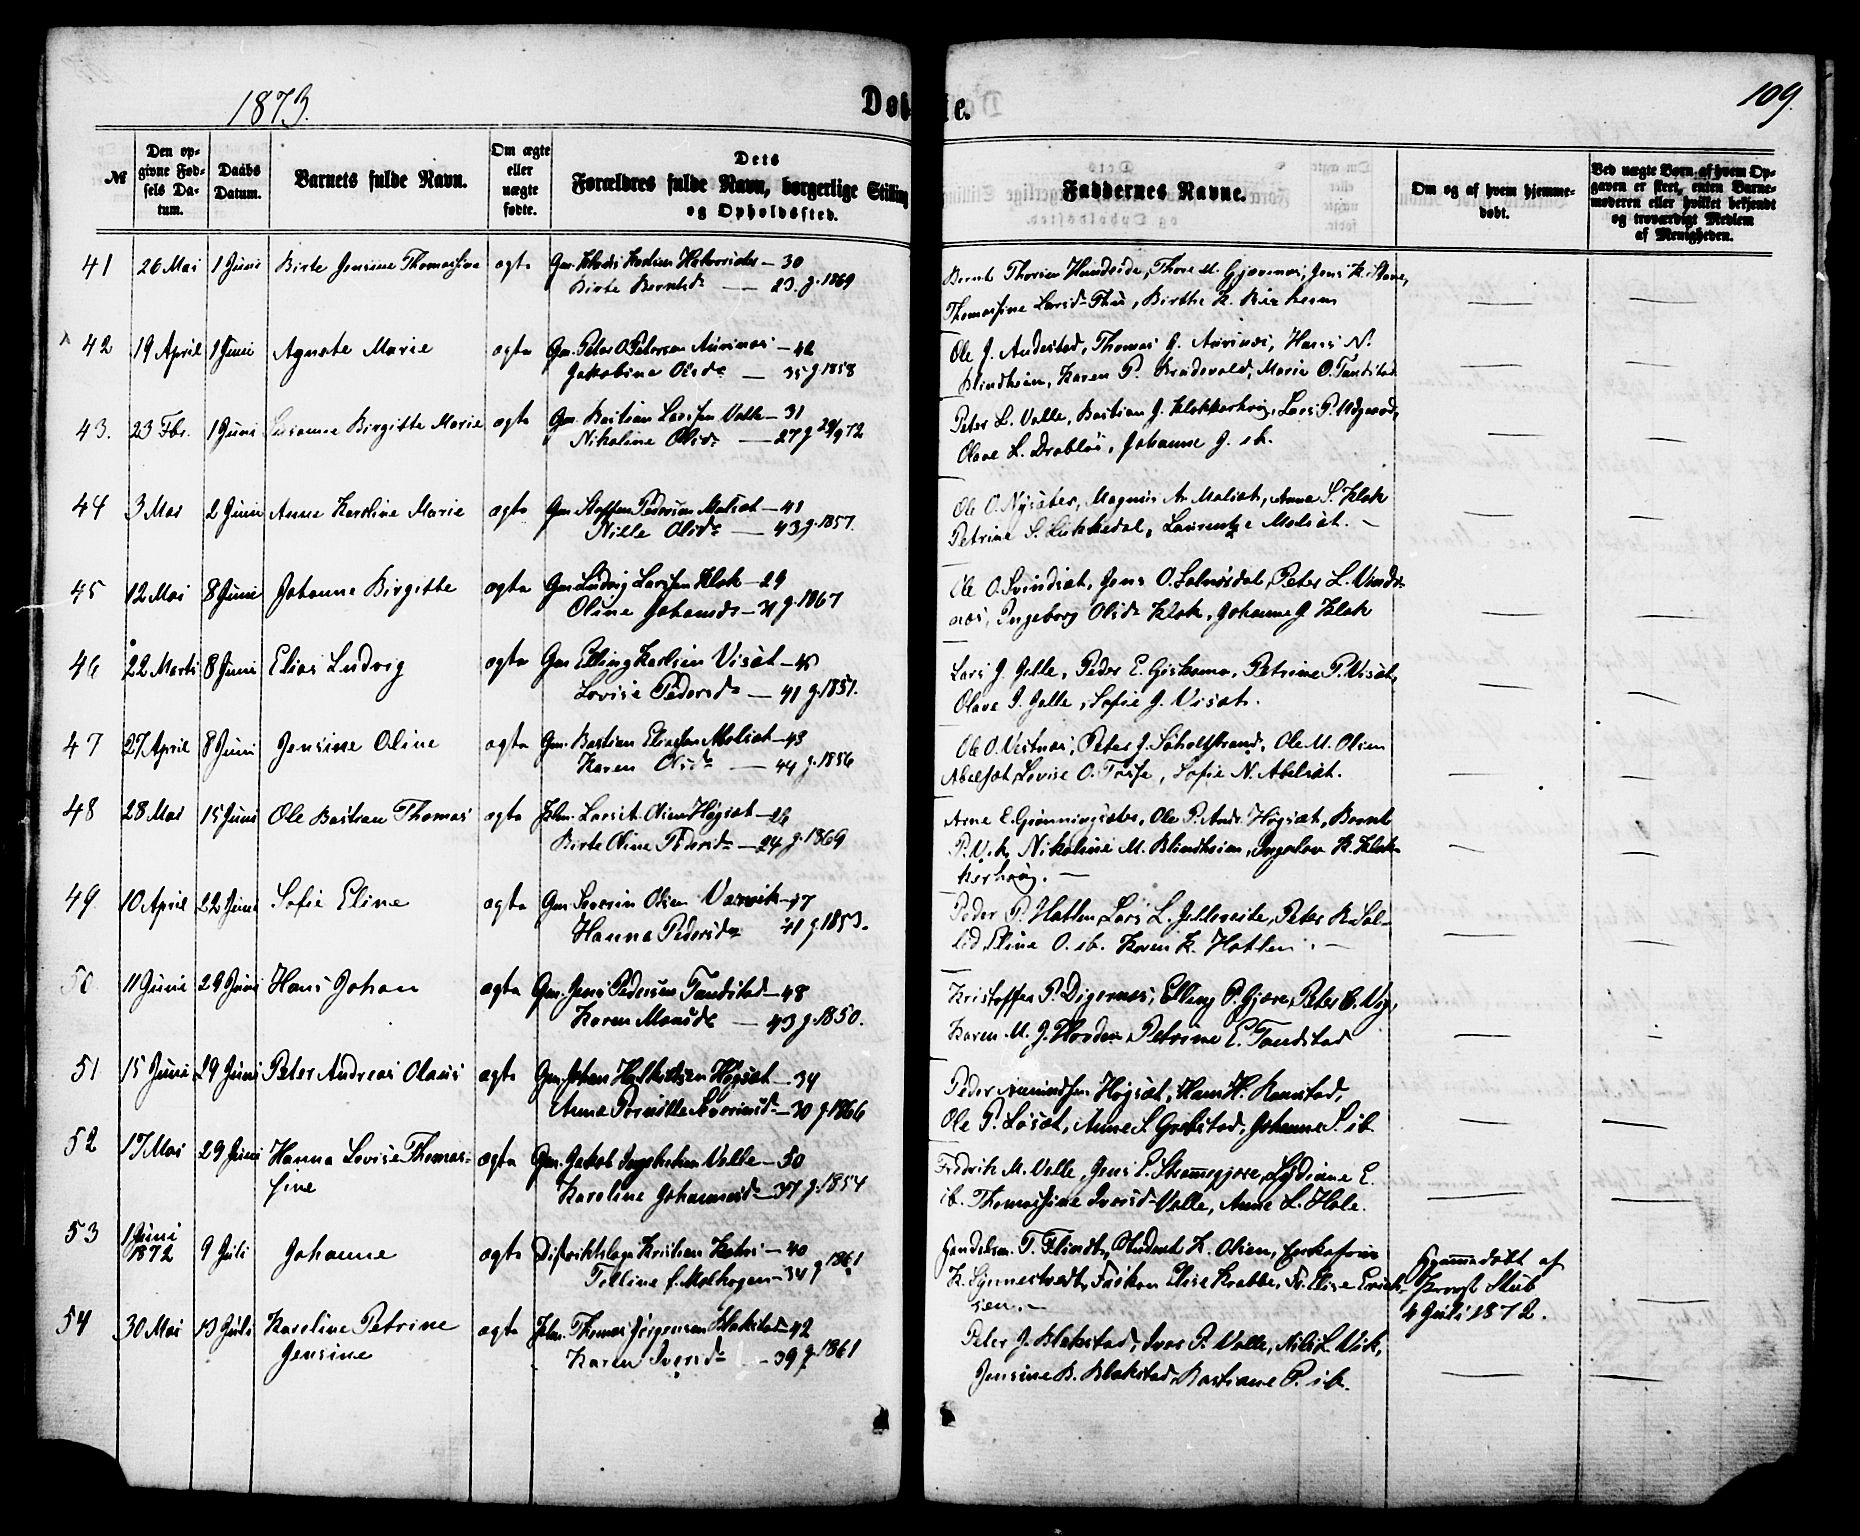 1873.
Døbte.
109.
№
Den opgivne Fødsels Datum.
Daabs Datum.
Barnets fulde Navn.
Om ægte eller uægte fødte.
Dets Forældres fulde Navn, borgerlige Stilling og Opholdssted.
Faddernes Navne.
Om og af hvem hjemmedøbt.
Ved uægte Børn af hvem Opgaven er skeet, enten Barnemoderen eller hvilket bekjendt og troværdigt Medlem af Menigheden.
41 26 Mai 1 Juni Birte Jensine Thomasine ægte Gm. — 30
Birte Berntsd — 23. g. 1869
Bernt Thorsen Hundeide, Thore M. Gjærenes, Jens K.
Thomasine Larsd Thu, Birthe K.
42 19 April 1 Juni Agnete Marie ægte Gm. Peter O. Petersen Aurenes — 42
Jakobine Olsd — 35 g. 1858
Ole J. Andestad, Thomas O. Aurenes, Hans N.
Blindheim, Karen P. Brudevold, Marie O. Tandstad
43. 23 Fbr. 1 Juni Susanne Birgitte Marie ægte Gm. Bastian Larsen Valle — 31
Nikoline Olsd — 27 g 29/9 72
Peter L. Valle, Bastian J. Klokkerhoug, Lars P.
Olave L. Drabløs, Johanne J. ib.
44 3 Mai 2 Juni Anne Karoline Marie ægte Gm. Steffen Pedersen Melsæt — 41
Nille Olsd — 43 g. 1857.
Ole O. Nysæter, Magnus A. Melsæt, Anne S. Klok
Petrine S. Lukkedal, Laurentze Melsæt. —
45 12 Mai 8 Juni Johanne Birgitte ægte Gm. Ludvig Larsen Klok — 29
Oline Johansd — 31 g. 1867
Ole O. Svindsæt, Jens O. Solnørdal, Peter L.
næs, Ingeborg Olsd Klok, Johanne J. Klok
46 22 Marts 8 Juni Elias Ludvig ægte Gm. Elling Karlsen Visæt — 45
Lovise Pedersd — 41 g. 1851.
Lars J. Gjelle, Peder E. Giskemo, Petrine P. Visæt,
Olave J. Gjelle, Sofie J. Visæt.
47 27 April 8 Juni Jensine Oline ægte Gm. Bastian Eliassen Melsæt — 43
Karen Olsd — 44 g. 1856
Ole O. Vestnes, Peter J. Søholtstrand, Ole M. Olsen
Abelsæt, Lovise O. Tøsse, Sofie N. Abelsæt.
48 28 Mai 15 Juni Ole Bastian Thomas ægte Olsen Høgsæt — 29
Birte Oline Pedersd — 24 g. 1869
Arne E. Grønningsæter, Ole P. Høgsæt, Bernt
P. Vik, Nikoline M. Blindheim, K. Klok-
kerhoug. —
49. 10 April 22 Juni Sofie Eline ægte Gm. Severin Olsen Værvik — 47
Hanna Pedersd 41 g. 1853.
Peder P. Hatlen, Lars L. Gjelleveite, Peter K. Sol-
lid, Eline O. ib. Karen K. Hatlen. —
50 11 Juni 29 Juni Hans Johan ægte Gm. Jens Pedersen Tandstad — 48
Karen Monsd — 43 g. 1850.
Kristoffer P. Digernes, Elling P. Gjære, Peter O. Vig,
Karen M. J. Hovden, Petrine E. Tandstad
51 15 Juni 29 Juni Peter Andreas Olaus ægte Gm. Johan Halkildsen Høgsæt — 34
Anne Pernille Severinsd — 30 g. 1866
Peder Amundsen Høgsæt, Hans H. Ramstad,
Ole P. Løsæt, Anne S. Grebstad, Johanne S. ib.
52 17 Mai 29 Juni Hanna Lovise Thomas-
sine ægte Gm. Jakob Ingebrigtsen Valle — 50
Karoline Johannesd — 37 g. 1854
Fredrik M. Valle, Jens P. Strømmegjære, Lydiane E.
ib. Thomassine Iversd Valle, Anne L. Hole.
53 1 Juni
1872 9 Juli Johanne ægte Distriktslæge Kristian — 40
f. — 34 g. 1861
Handelsm. T. Flindt, Student K. Olsen, Enkefrue
K. Synnestvedt, Frøken Elise Krabbe, Fr. Elise Erich-
sen. —
Hjemmedøbt af
Provst Stub
4 Juli 1872.
54 30 Mai 13 Juli Karoline Petrine
Jensine ægte Thomas Jørgensen Blakstad — 42
Karen Iversd — 39 g. 1861
Peter J. Blakstad, Iver P. Valle, Nils L. Vik,
Jensine B. Blakstad, Bastiane P. ib.